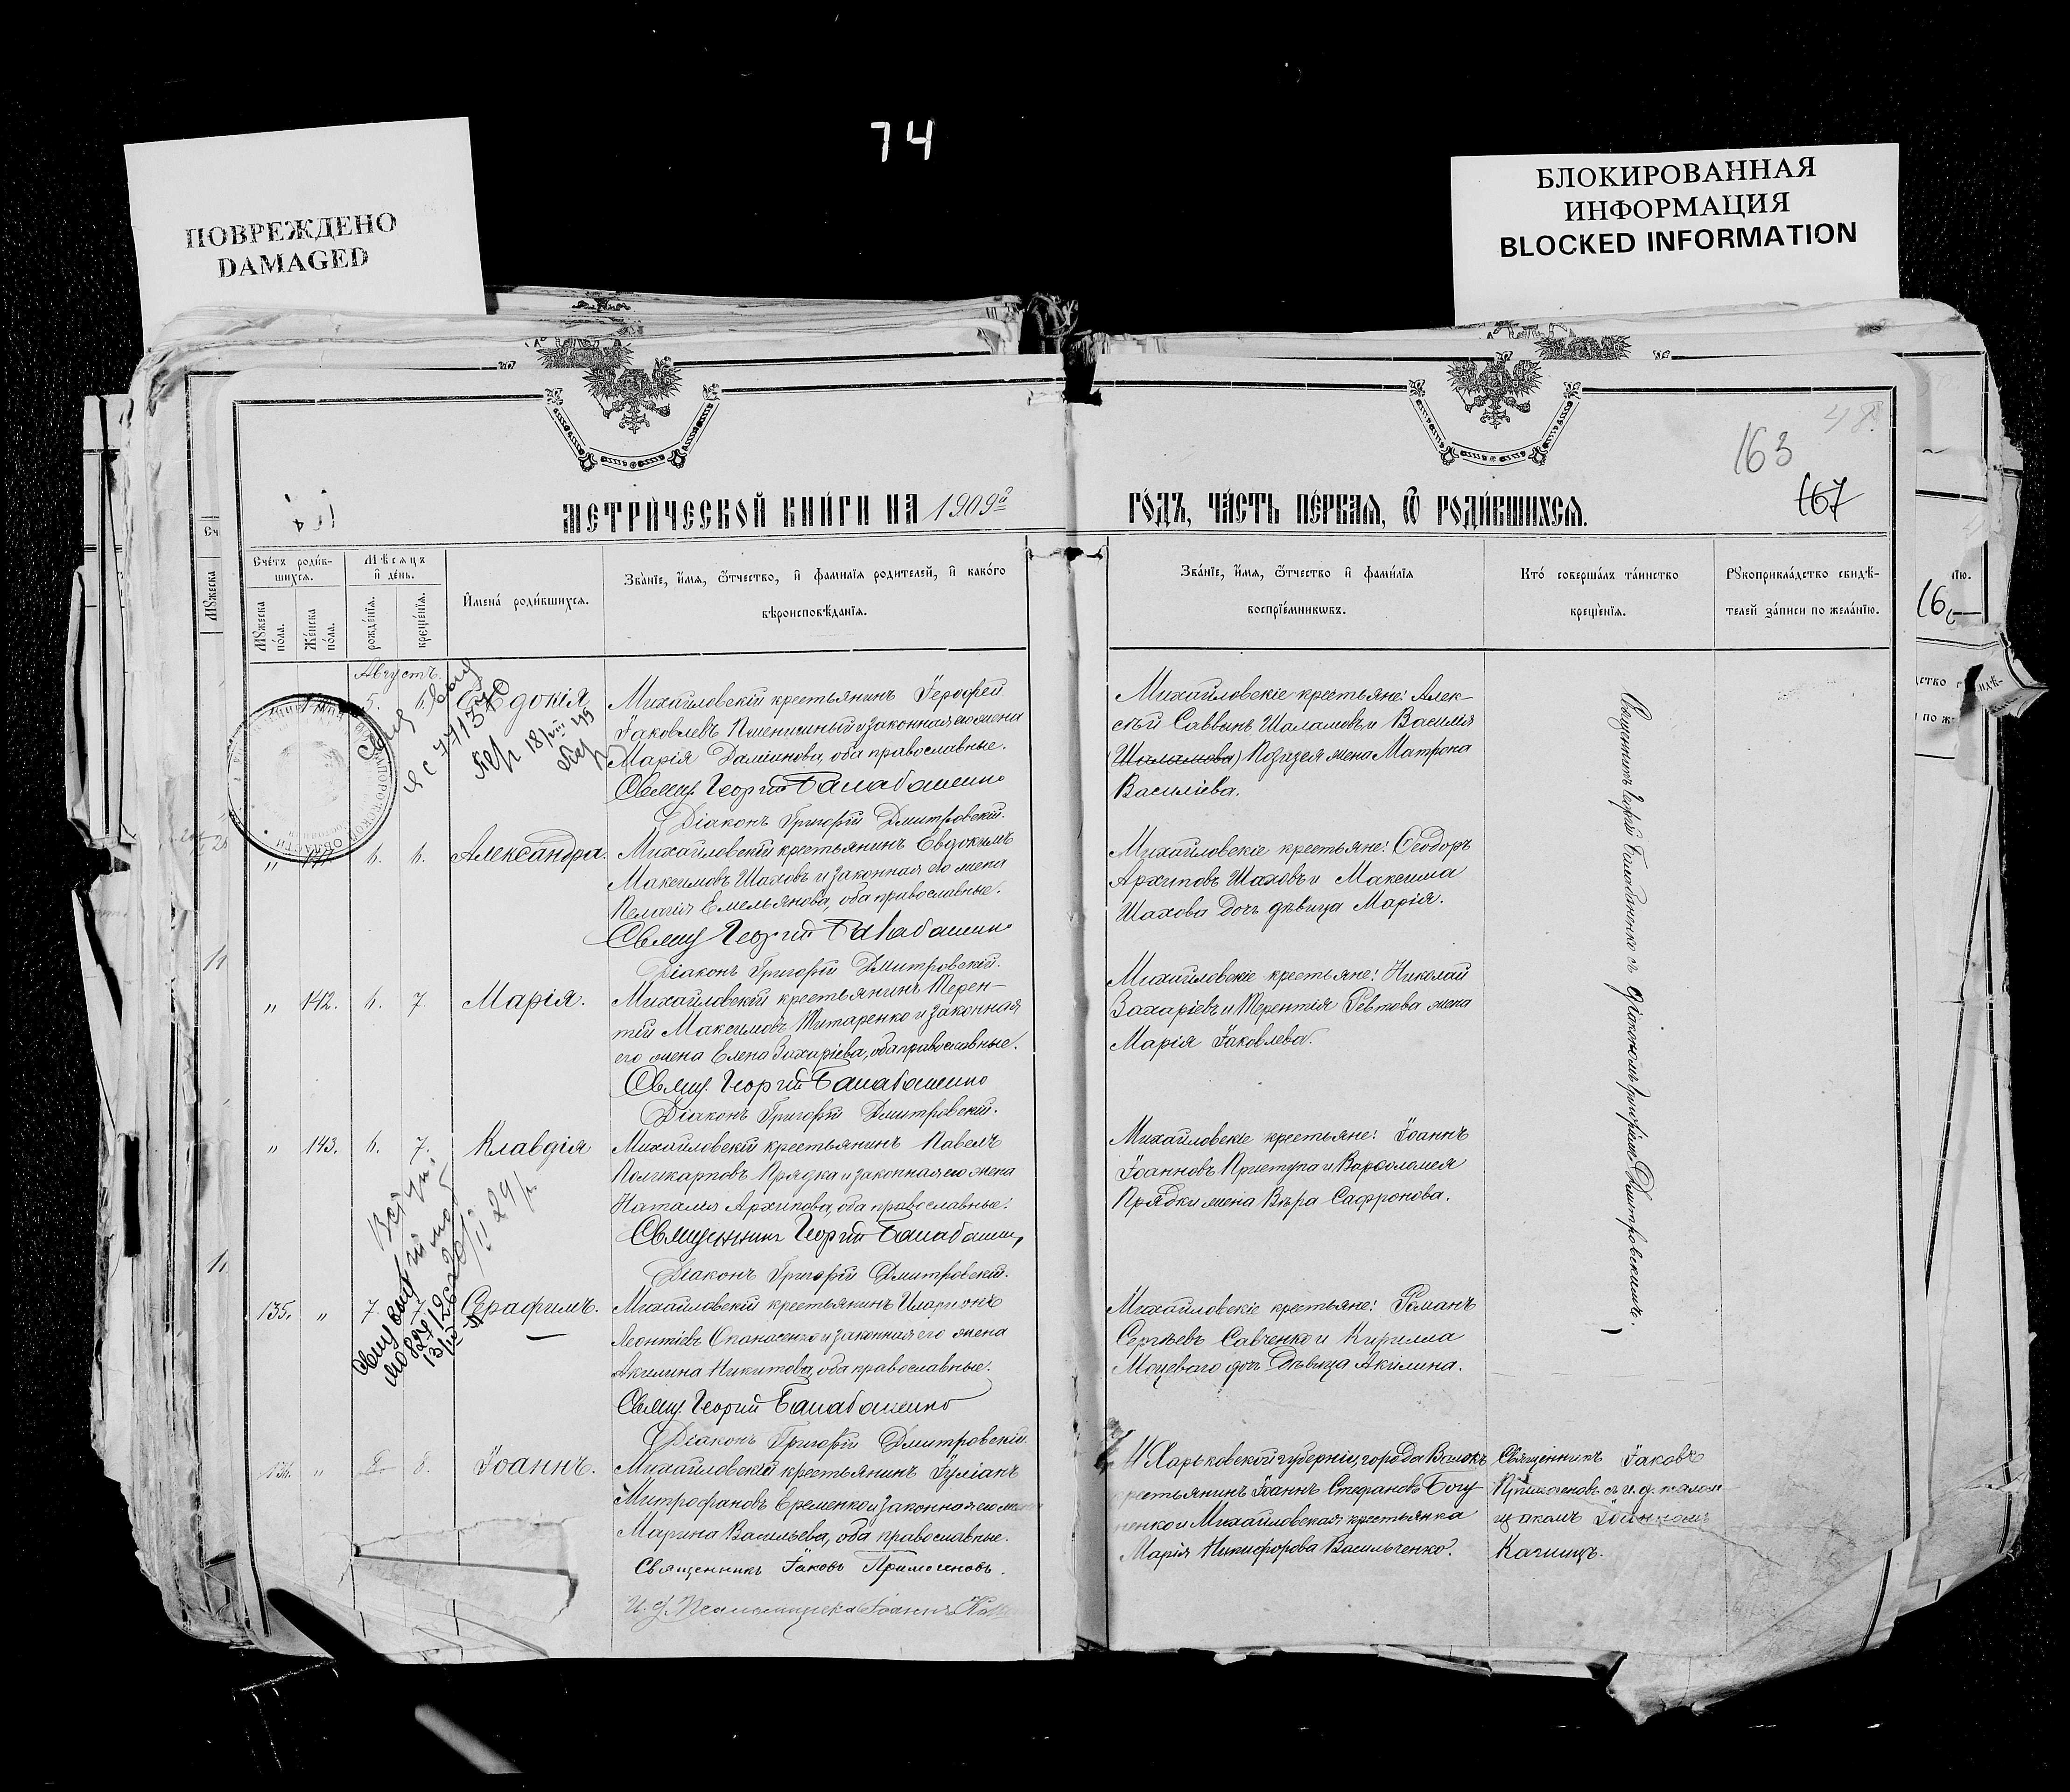 74
ПОВРЕЖДЕНО
DAMAGED
БЛОКИРОВАННАЯ
ИНФОРМАЦИЯ
BLOCKED INFORMATION
48
163
167
МЕТРИ́ЧЕСКОЙ КНИ́ГИ НА 1909й
ГО́ДЪ, ЧА́СТЬ ПЕ́РВАЯ, Ѡ РОДИ́ВШИХСЯ.
Сче́тъ роди́в-
шихся.
Мꙋжеска по́ла.
Же́нска по́ла.
Мѣсяцъ
и҆ де́нь.
рожде́нїя.
креще́нїя.
И҆мена̀ роди́вшихся.
Зва́нїе, и҆́мя, ѻ҆́тчество, и҆ фамилїя родителей, и҆ како́го
вѣроисповѣ́данїя.
Зва́нїе, и҆́мя, ѻ҆́тчество и҆ фами́лїя
воспрїе́мникѡвъ.
Кто̀ соверша́лъ та́инство
креще́нїя.
Рꙋкоприкла́дство свидѣ́-
телей за́писи по жела́нїю.
Августъ.
5. 6. Евдокія
Михайловскій крестьянинъ Іерофей
Іаковлевъ Пшеничный и законная его жена
Марія Даміанова, оба православные.
Свящ. Георгій Балабаненко
Діаконъ Григорій Дмитровскій.
Михайловскіе крестьяне: Алек-
сѣй Саввинъ Шаламовъ и Василія
(Шаламова) Позидея жена Матрона
Василіева.
Священникъ Георгій Балабаненко съ діакономъ Григоріемъ Дмитровскимъ.
„ 141. 6. 6. Александра.
Михайловскій крестьянинъ Евдокимъ
Максимовъ Шаховъ и законная его жена
Пелагія Емельянова, оба православные.
Свящ Георгій Балабаненко
Діаконъ Григорій Дмитровскій.
Михайловскіе крестьяне: Ѳеодоръ
Архиповъ Шаховъ и Максима
Шахова дочь дѣвица Марія.
„ 142. 6. 7. Марія.
Михайловскій крестьянинъ Терен-
тій Максимовъ Титаренко и законная
его жена Елена Захаріева, оба православные.
Свящ. Георгій Балабаненко
Діаконъ Григорій Дмитровскій.
Михайловскіе крестьяне: Николай
Захаріевъ и Терентія Ревтова жена
Марія Іаковлева.
„ 143. 6. 7. Клавдія
Михайловскій крестьянинъ Павелъ
Поликарповъ Прядка и законная его жена
Наталія Архипова, оба православные.
Священникъ Георгій Балабаненко
Діаконъ Григорій Дмитровскій.
Михайловскіе крестьяне: Іоаннъ
Іоанновъ Приступа и Варѳоломея
Прядки жена Вѣра Сафронова.
135. „ 7. 7. Серафимъ.
Михайловскій крестьянинъ Иларіонъ
Леонтіевъ Опанасенко и законная его жена
Акилина Никитова, оба православные.
Свящ Георгій Балабаненко
Діаконъ Григорій Дмитровскій
Михайловскіе крестьяне: Романъ
Сергѣевъ Савченко и Кирилла
Моцеваго дочь дѣвица Акилина.
136. „ 8. Іоаннъ.
Михайловскій крестьянинъ Іуліанъ
Митрофановъ Еременко и законная его жена
Марина Васильева, оба православные.
Священникъ Іаковъ Примоченовъ.
И. д. Псаломщика Іоаннъ
Харьковской губерніи, города Валокъ
крестьянинъ Іоаннъ Стефановъ Богу-
ненко и Михайловская крестьянка
Марія Никифорова Васильченко.
Священникъ Іаковъ
Примоченовъ съ и. д. псалом-
щикомъ Іоанномъ